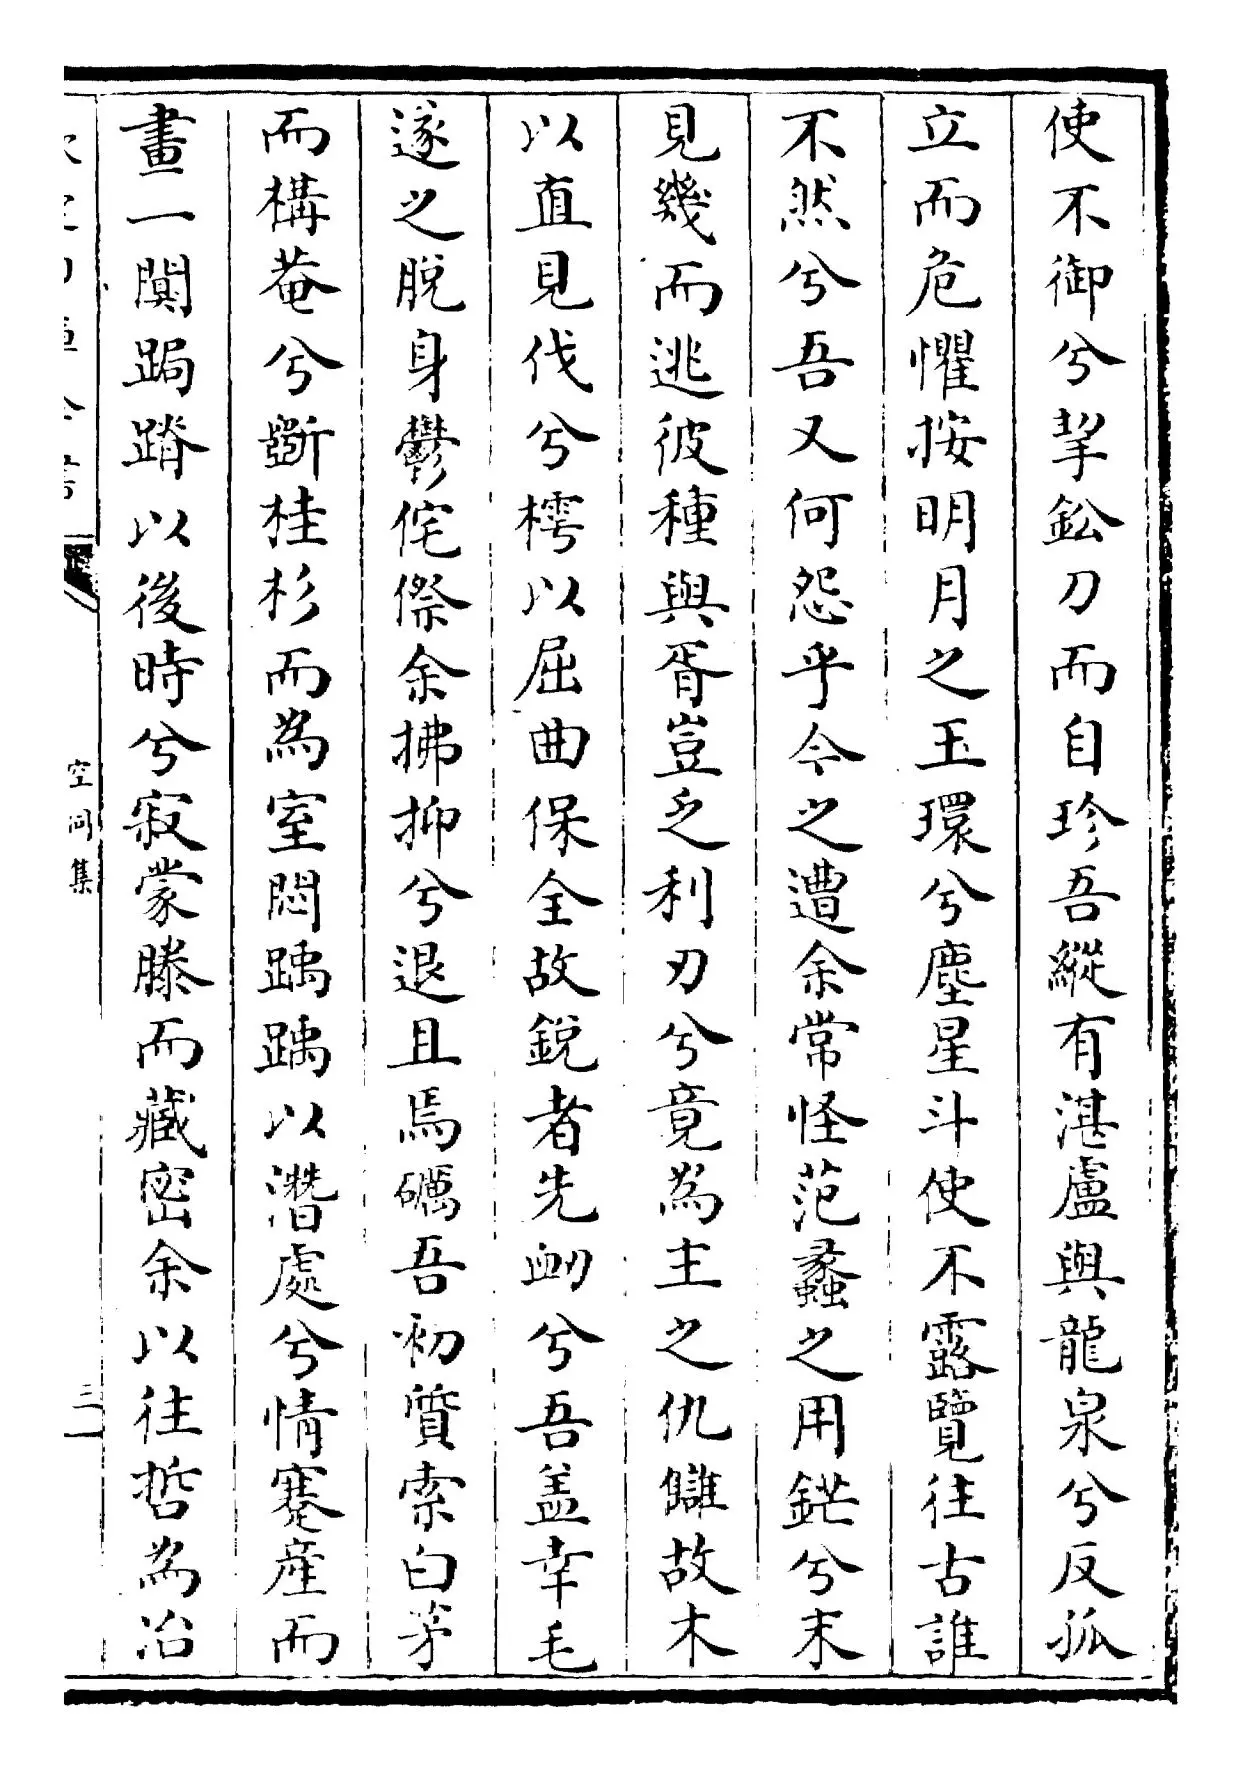 使不御兮挈鈆刀而自珍吾縱有湛盧與龍泉兮反孤
立而危懼按明月之玉環兮塵星斗使不露覽往古誰
不然兮吾又何怨乎今之遭余常怪范蠡之用鋩兮末
見幾而逃彼種與胥豈乏利刃兮竟為主之仇讎故木
以直見伐兮樗以屈曲保全故銳者先劒兮吾盖幸毛
遂之脫身鬱侘傺余拂抑兮退且焉礪吾初質索白茅
而構菴兮斷桂杉而為室悶踽踽以潛處兮情蹇產而
畫一闃跼蹐以後時兮寂蒙滕而藏密余以往哲為冶
空同集
三